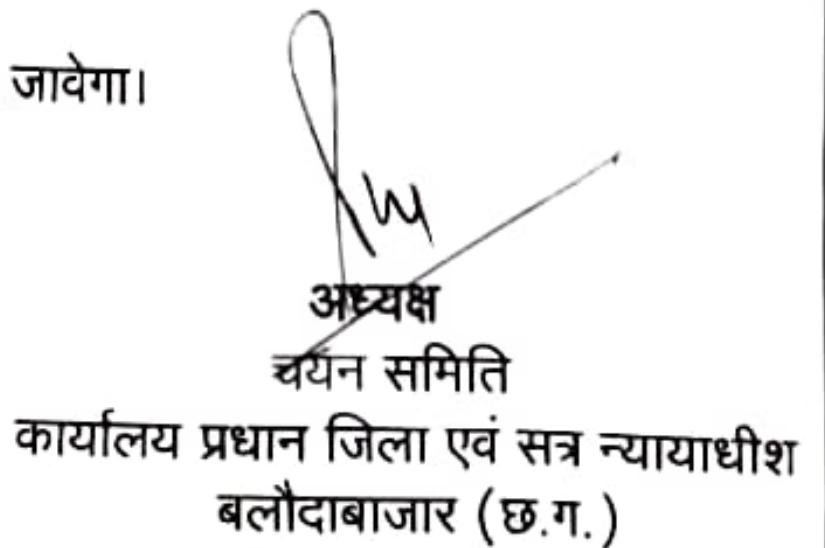 जावेगा।
अध्यक्ष
चयन समिति
कार्यालय प्रधान जिला एवं सत्र न्यायाधीश
बलौदाबाजार (छ.ग.)